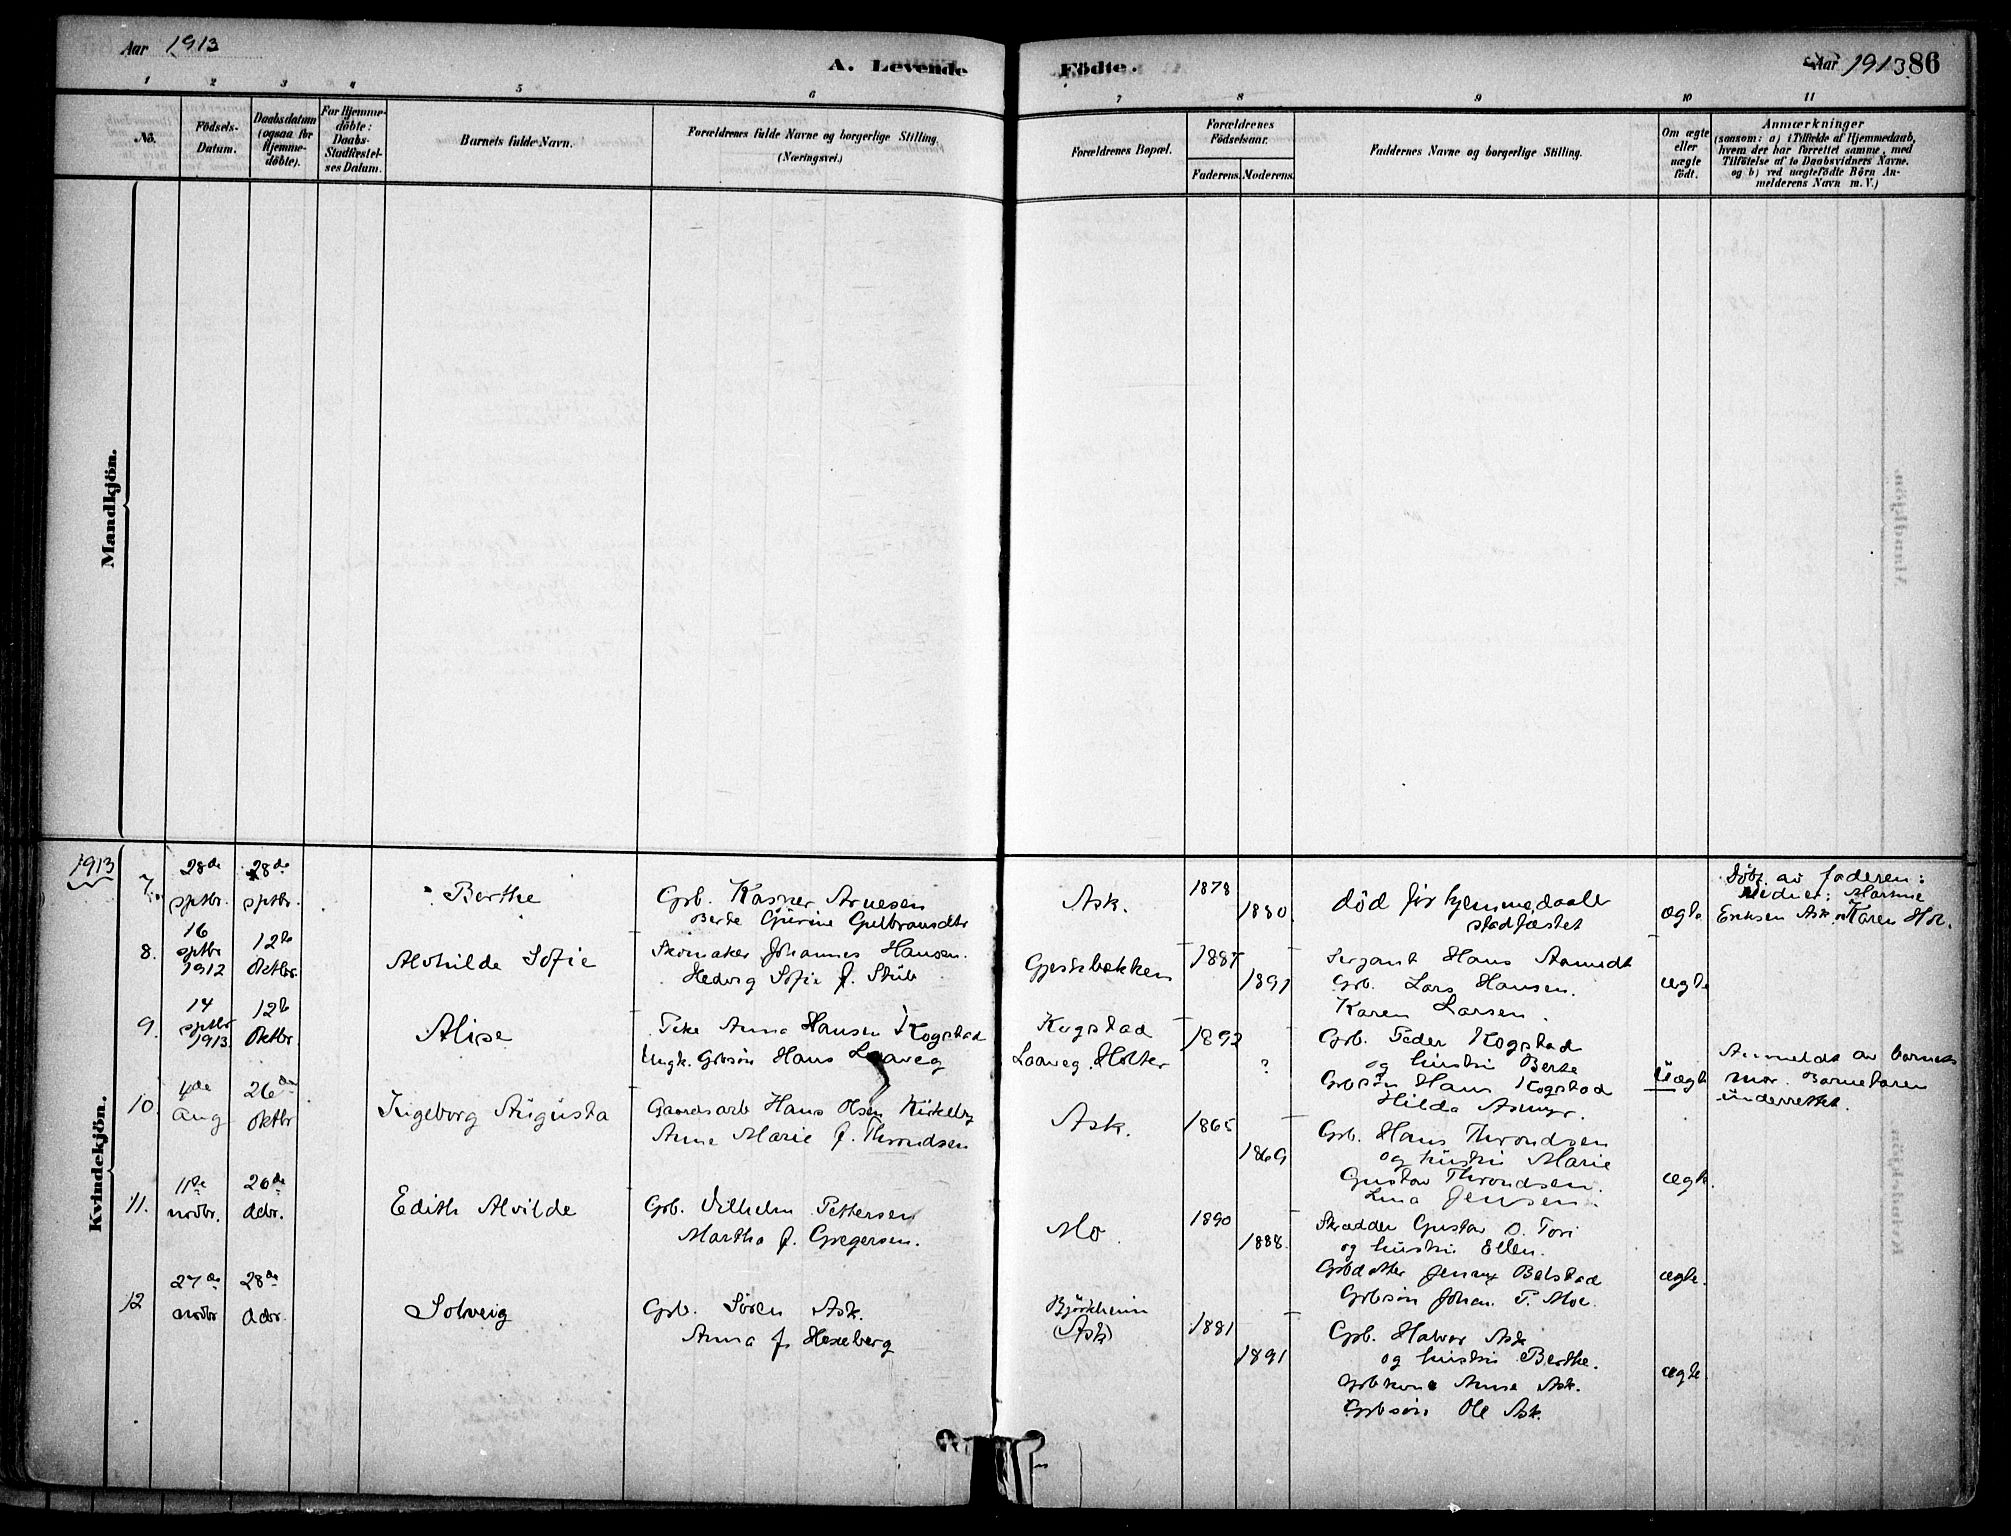 Aar 1913
A. Levende Födte.
Aar 1913 86
1 2 3 4 5 6 7 8 9 10 11
No.
Födsels-Datum.
Daabsdatum (ogsaa for Hjemme-döbte).
For Hjemme-döbte: Daabs-Stadfæstel-ses Datum.
Barnets fulde Navn.
Forældrenes fulde Navne og borgerlige Stilling.
(Næringsvei.)
Forældrenes Bopæl.
Forældrenes Födselsaar.
Faderens. Moderens.
Faddernes Navne og borgerlige Stilling.
Om ægte eller uægte födt.
Anmærkninger
(saasom: a) i Tilfælde af Hjemmedaab,
hvem der har forrettet samme, med
Tilföielse af to Daabsvidners Navne.
og b) ved uægtefödte Börn An-
melderens Navn m. V.)
Mandkjön.
Kvindekjön.
1913
7. 28de sptbr. 28de sptbr. Berthe
Grb. Kasper Arnesen
Berte Gurine Gulbransdtr
Ask. 1878 1880.
død før hjemmedaaben
stadfæstet
ægte
Døbt av faderen:
Vidner: Martine
Eriksen Ask, Karen Hol.
8. 16 sptbr 1912 12te Oktbr. Alvhilde Sofie
Skomaker Johannes Hansen.
Hedvig Sofie f. Stub
Gjestebækken 1891
Serjant Hans Aamodt
Grb. Lars Hansen.
Karen Larsen.
ægte
9. 14 sptbr 1913. 12te Oktbr. Alise
Pike Anna Hansen Kogstad
Ungk. Gbsøn Hans Laaveg
Kogstad
Laaveg. Holter
1892 ?
Grb. Peder Kogstad
og hustru Berte
Grbsøn Hans Kogstad
Hilda Asmyr.
Uægte
Anmeldt av barnets
mor. Barnefaren
underrettet.
10. 4de Aug 26de Oktbr Ingeborg Augusta
Gaardsarb Hans Olsen Kirkeby
Anne Marie f. Throndsen
Ask. 1865 1869
Grb. Hans Throndsen
og hustru Marie
Gustav Throndsen.
Lina Jensen.
ægte.
11. 11te novbr. 26de decbr. Edith Alvilde
Grb. Vilhelm Pettersen
Martha f. Gregersen.
Mo 1890 1888.
Skrædder Gustav O. Tori
og hustru Ellen.
Grbdatter Jenny Bølstad
Grbsøn Johan P. Moe.
ægte.
12 27de novbr 28de decbr. Solveig
Grb. Søren Ask.
Anna f. Hexeberg
Björkheim
(Ask)
1881 1891
Grb. Halvor Ask
og hustru Berthe.
Grbkone Anne Ask.
Grbsøn Ole Ask.
ægte.